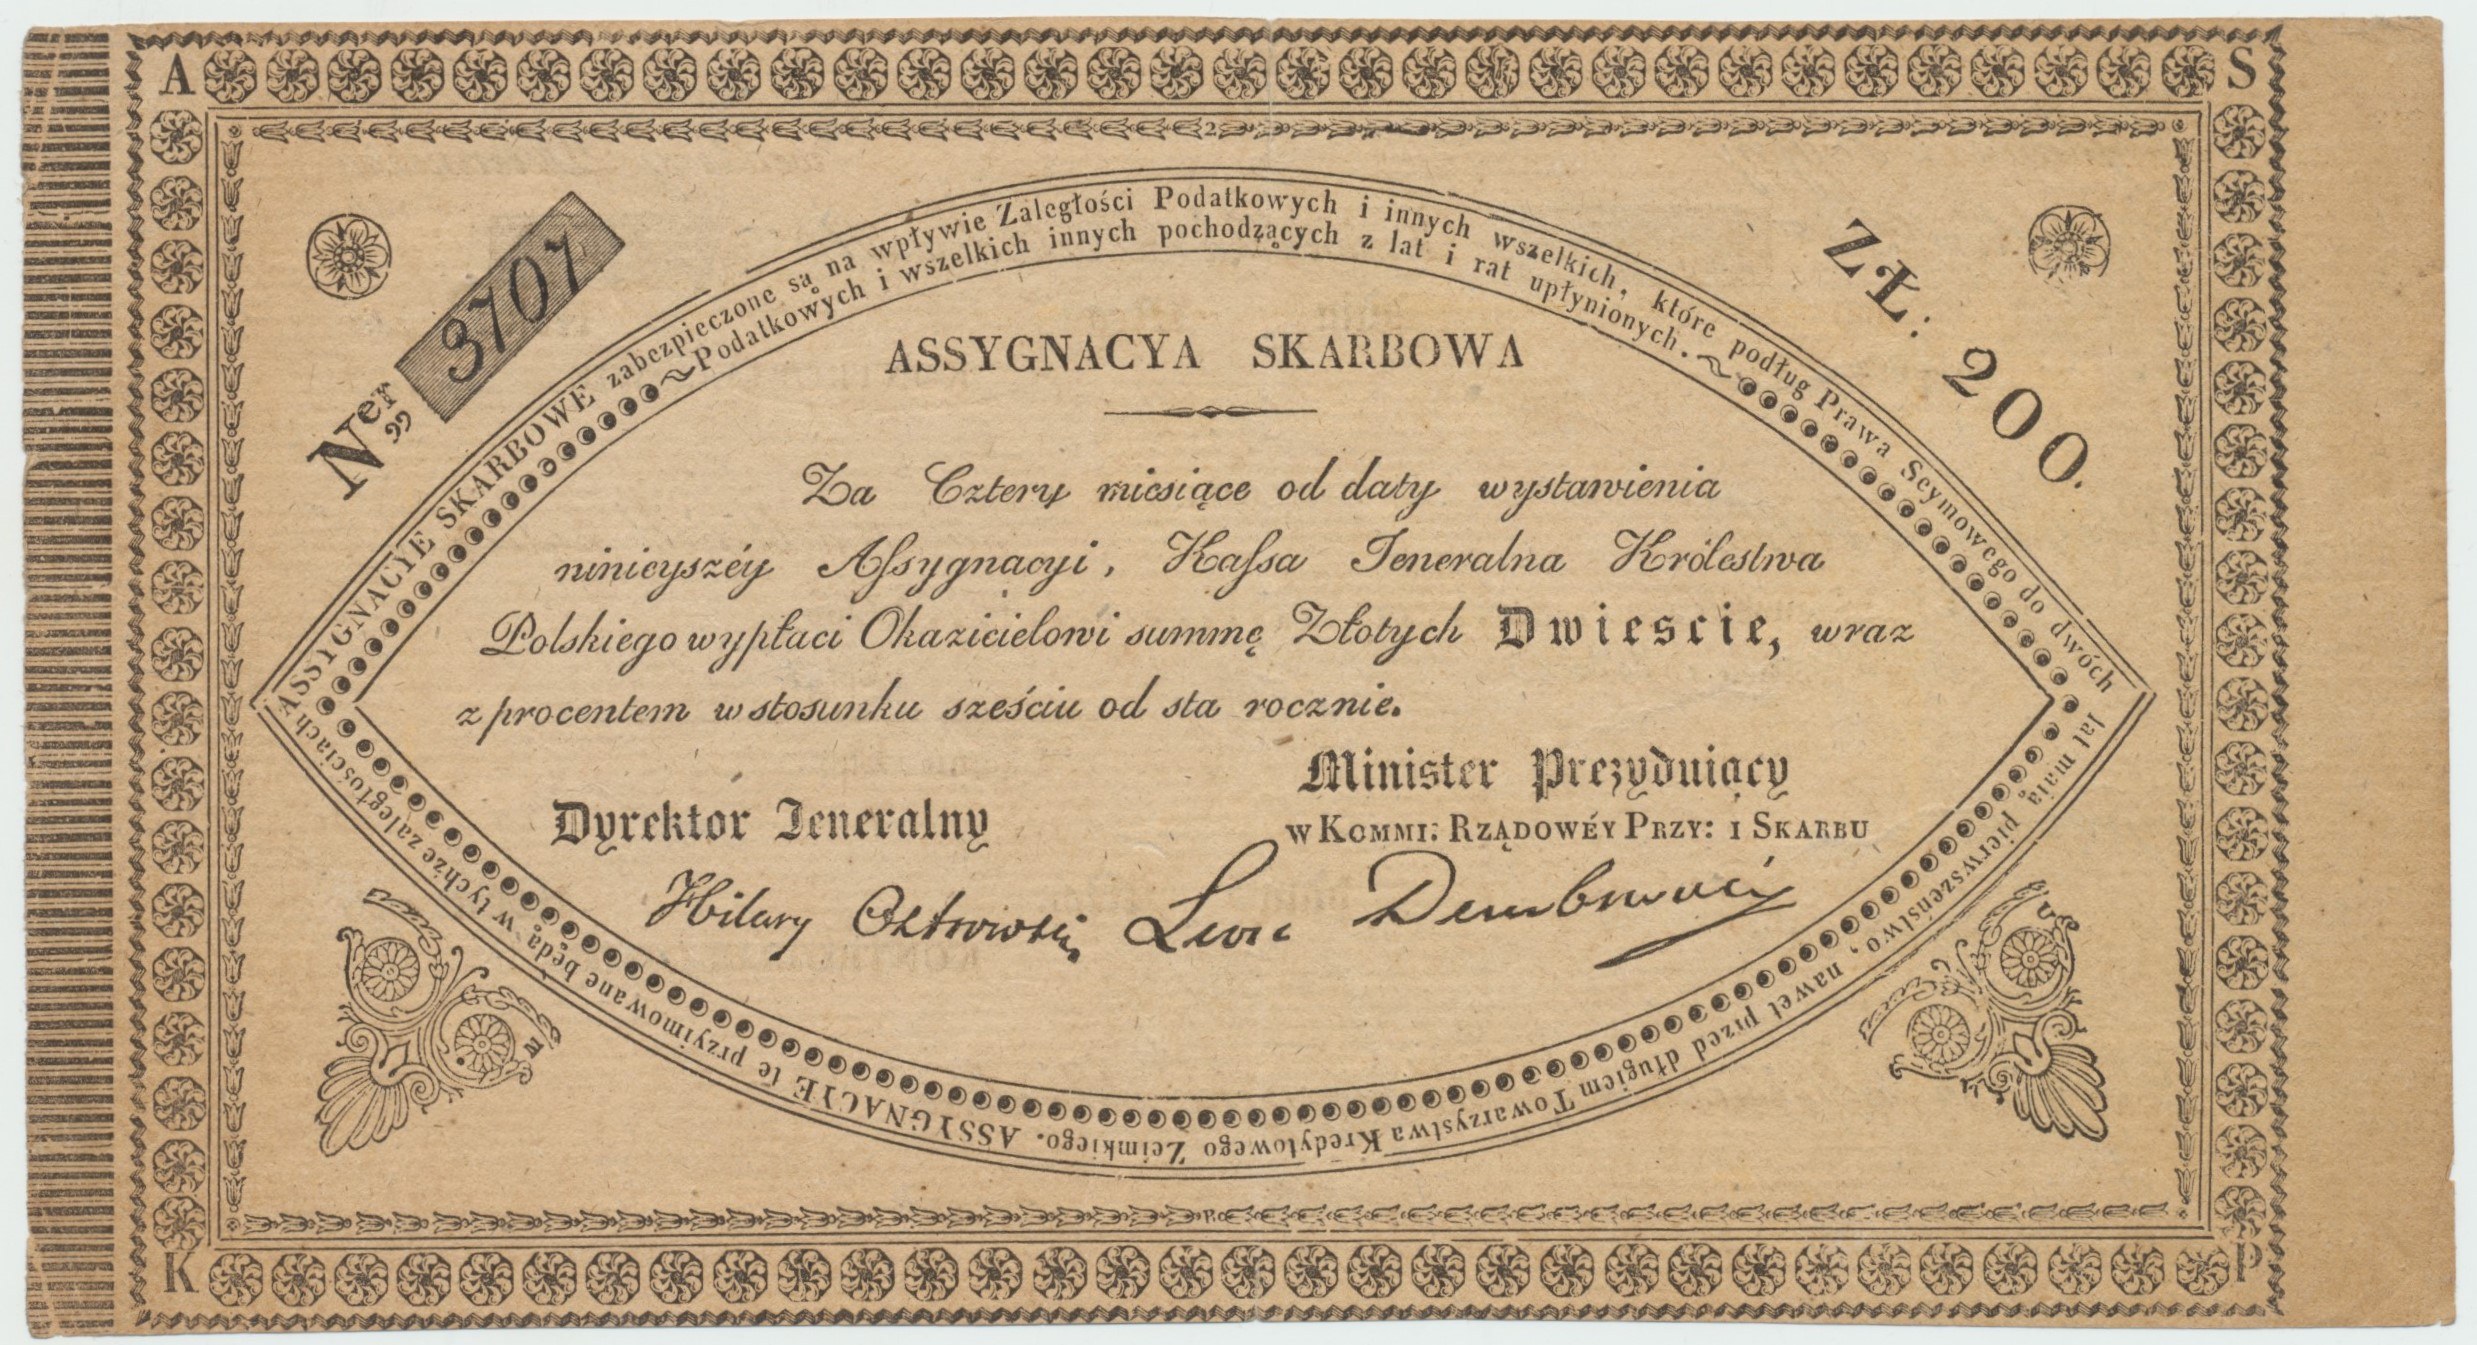 A S
Ner 3707
ZŁ: 200.
ASSYGNACYE SKARBOWE zabezpieczone są na wpływie Zaległości Podatkowych i innych wszelkich, które podług Prawa Seymowego do dwóch
lat maią pierwszeństwo, nawet przed długiem Towarzystwa Kredytowego Zeimkiego. ASSYGNACYE te przyimowane będą w tychże zaległościach
Podatkowych i wszelkich innych pochodzących z lat i rat upłynionych.
ASSYGNACYA SKARBOWA
Za Cztery miesiące od daty wystawienia
ninieyszéy Assygnacyi, Kassa Jeneralna Królestwa
Polskiego wypłaci Okazicielowi summę Złotych Dwiescie, wraz
z procentem w stosunku sześciu od sta rocznie.
Dyrektor Jeneralny
Minister Prezyduiący
w Kommi: Rządowéy Przy: i Skarbu
Hilary Ostrowski Leon Dembowski
K P